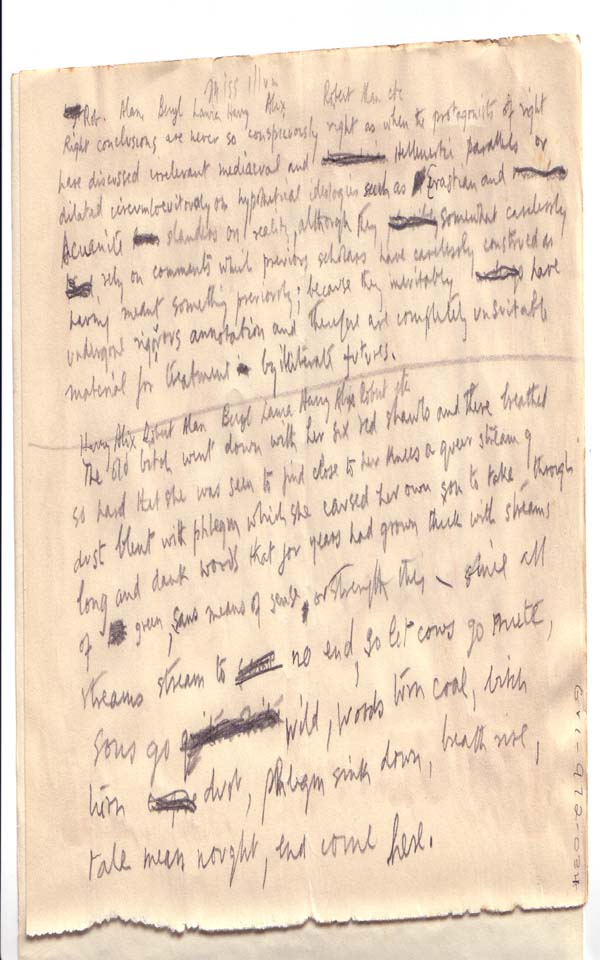 Miss Illum
Rob. Alan, Beryl Laura Harry Alix, Robert Alan etc
Right conclusions are never so conspicuously right as when the protagonists of right
have discussed irrelevant mediaeval and Hellenistic parallels or
dilated circumlocutiously on hypothetical ideologies such as Erastian and
slanders on reality, although they somewhat carelessly
rely on comments which previous scholars have carelessly construed as
having meant something previously; because they inevitably have
undergone rigorous annotation and therefore are completely unsuitable
material for treatment by illiterate futures.
Harry Alix Robert Alan Beryl Laura Harry Alix Robert etc
The old bitch went down with her six red shawls and there breathed
so hard that she was seen to find close to her knees a queer stream of
dust blent with phlegm which she caused her own son to take through
long and dank words that for years had grown thick with streams
of green, sans means of sense, or strength thus – since all
streams stream to no end, so let cows go mute,
sons go wild, words turn coal, bitch
turn dust, phlegm sink down, breath rise,
tale mean nought, end come here.